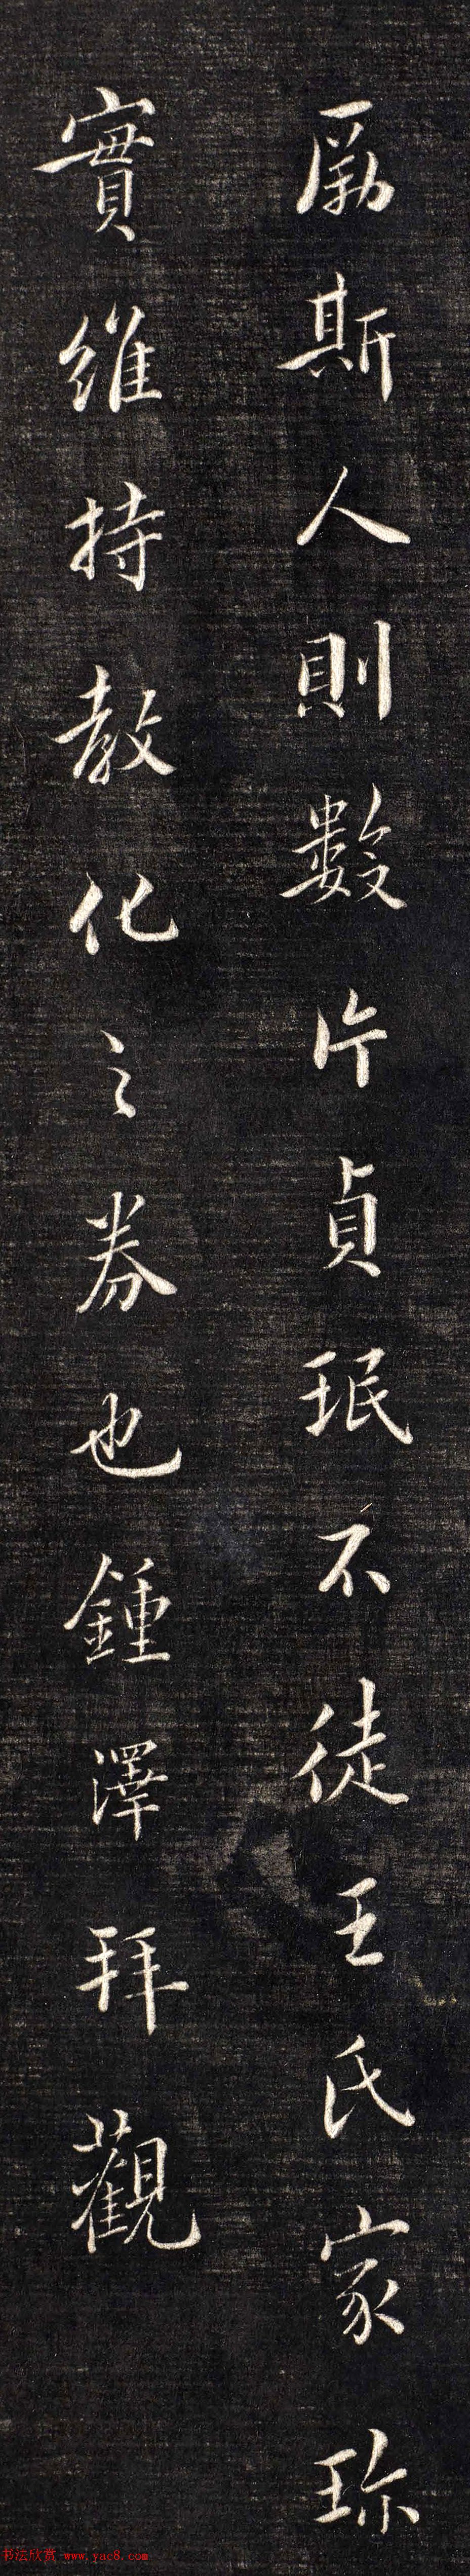 勵斯人則數片貞珉不徒王氏家珎
實維持教化之券也鍾澤拜觀
书法欣赏 www.yac8.com